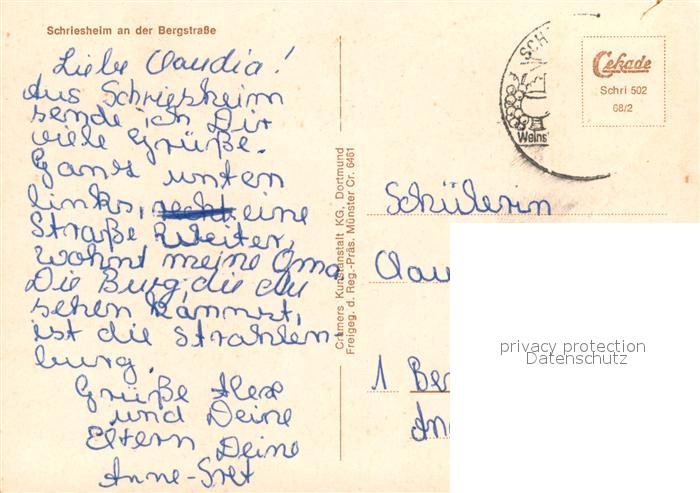 Schriesheim an der Bergstraße
Liebe Claudia!
Aus Schriesheim
sende ich Dir
viele Grüße.
Ganz unten
links, recht eine
Straße weiter,
wohnt meine Oma
Die Burg, die du
sehen kannst,
ist die Strahlen-
burg.
Grüße Alex
und Deine
Eltern Deine
Anne-Gret
Cramers Kunstanstalt KG, Dortmund
Freigeg. d. Reg.-Präs. Münster Cr. 6461
SCH
Weins
Cekade
Schri 502
68/2
Schülerin
Clau
1 Ber
An
privacy protection
Datenschutz